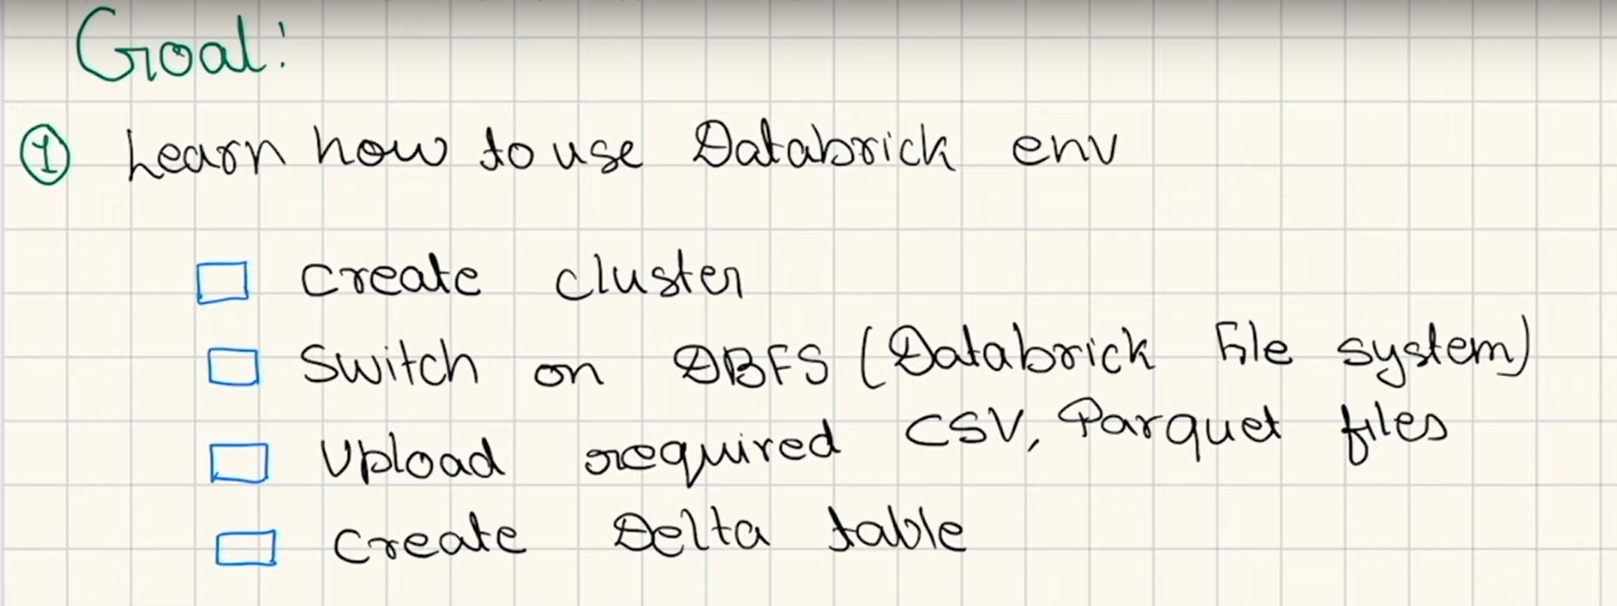 Goal:
1 Learn how to use Databrick env
create cluster
Switch on DBFS (Databrick File system)
Upload required CSV, Parquet files
create Delta table